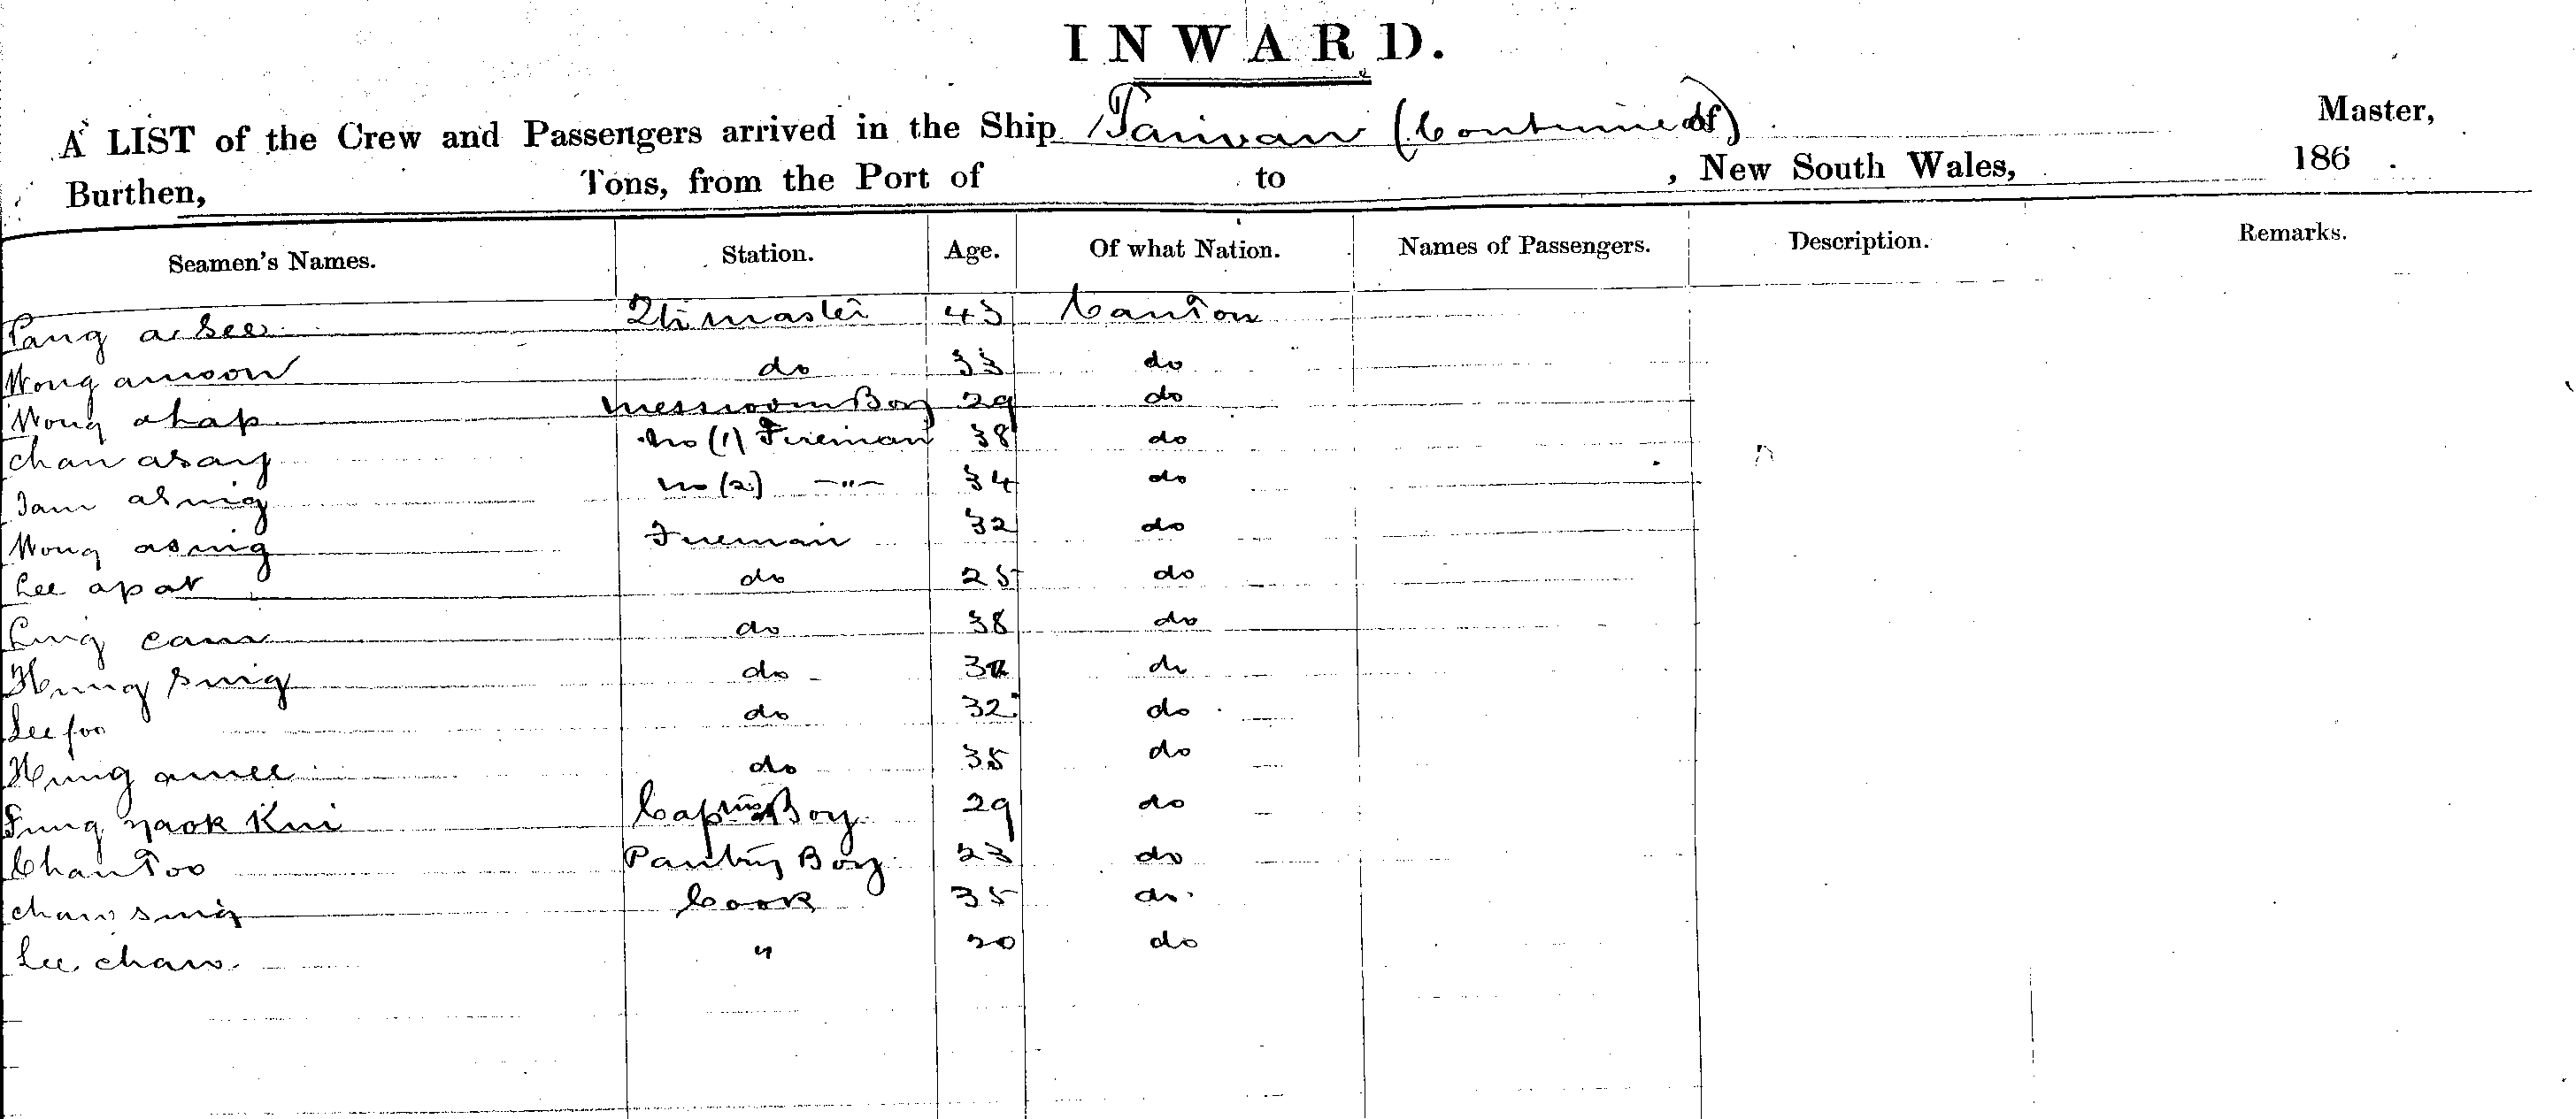 INWARD.
A LIST of the Crew and Passengers arrived in the Ship Taiwan (Continued) of Master,
Burthen, Tons, from the Port of to , New South Wales, 186 .
Seamen's Names. Station. Age. Of what Nation. Names of Passengers. Description. Remarks.
Pang a See Qtrmaster 43 Canton
Wong amoon do 33 do
Wong ahap messroom Boy 29 do
Chan asay no (1) Fireman 38 do
Tam asing no (2) -"- 34 do
Wong asing Fireman 32 do
Lee apat do 25 do
Ling cam do 38 do
Hung Sing do do
Lee foo do 32 do
Hung amee do 35 do
Fung yaok Kui Captns Boy 29 do
Chan Too Pantry Boy 23 do
chan sing Cook 35 do
Lee chaw " 20 do